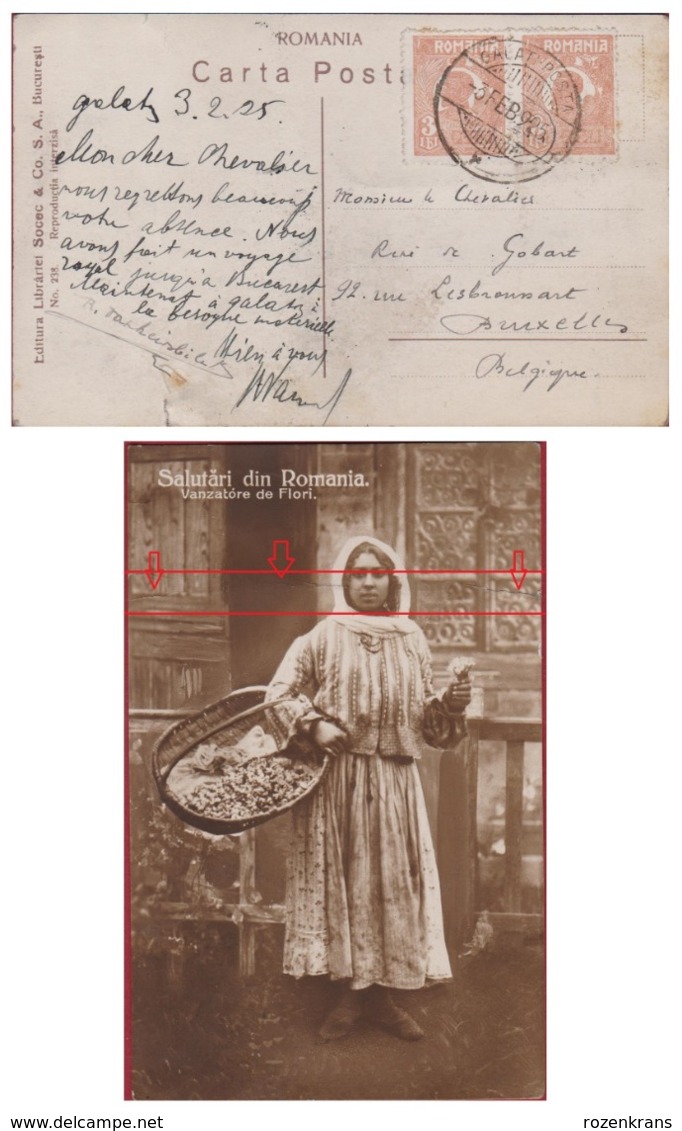 ROMANIA
Carta Posta
Editura Librăriei Socec & Co. S. A., București
No. 238. Reproducția interzisă
ROMANIA
ROMANIA
3
LEI
GALATI POSTA
-3 FEB 925
galatz 3.2.25
Mon cher Chevalier
nous regrettons beaucoup
votre absence. Nous
avons fait un voyage
royal jusqu'à Bucarest
Maintenant à galatz
la besogne matérielle
Bien à vous
Monsieur le Chevalier
Rué de Gobart
92. rue Lesbroussart
Bruxelles
Belgique.
Salutări din Romania.
Vanzatóre de Flori.
rozenkrans